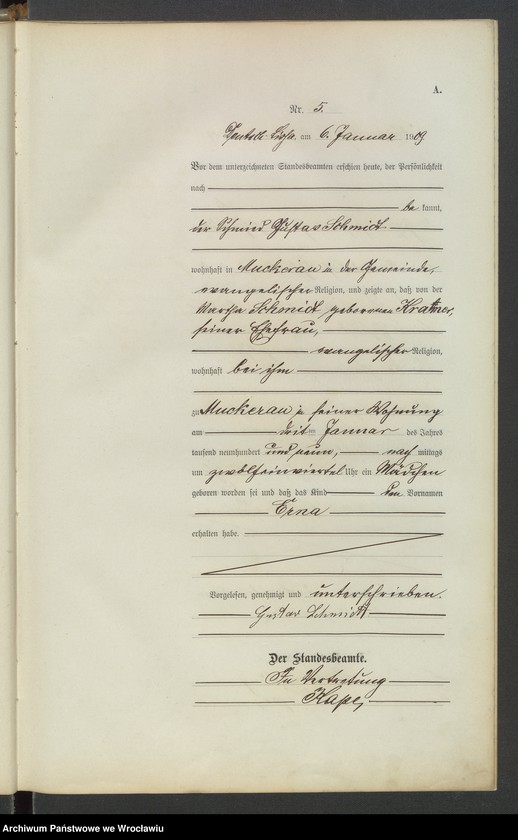 A.
Nr. 5.
Deutsch-Lissa, am 6. Januar 1909
Vor dem unterzeichneten Standesbeamten erschien heute, der Persönlichkeit
nach
be kannt,
der Schmied Gustav Schmidt
wohnhaft in Muckerau in der Gemeinde,
evangelischer Religion, und zeigte an, daß von der
Schmidt, geborenen
seiner Ehefrau,
evangelischer Religion,
wohnhaft bei ihm
zu Muckerau in seiner Wohnung
am Januar des Jahres
tausend neunhundert und neun, nach mittags
um zwölfeinviertel Uhr ein Mädchen
geboren worden sei und daß das Kind den Vornamen
Erna
erhalten habe.
Vorgelesen, genehmigt und unterschrieben.
Gustav Schmidt
Der Standesbeamte.
In Vertretung
Archiwum Państwowe we Wrocławiu